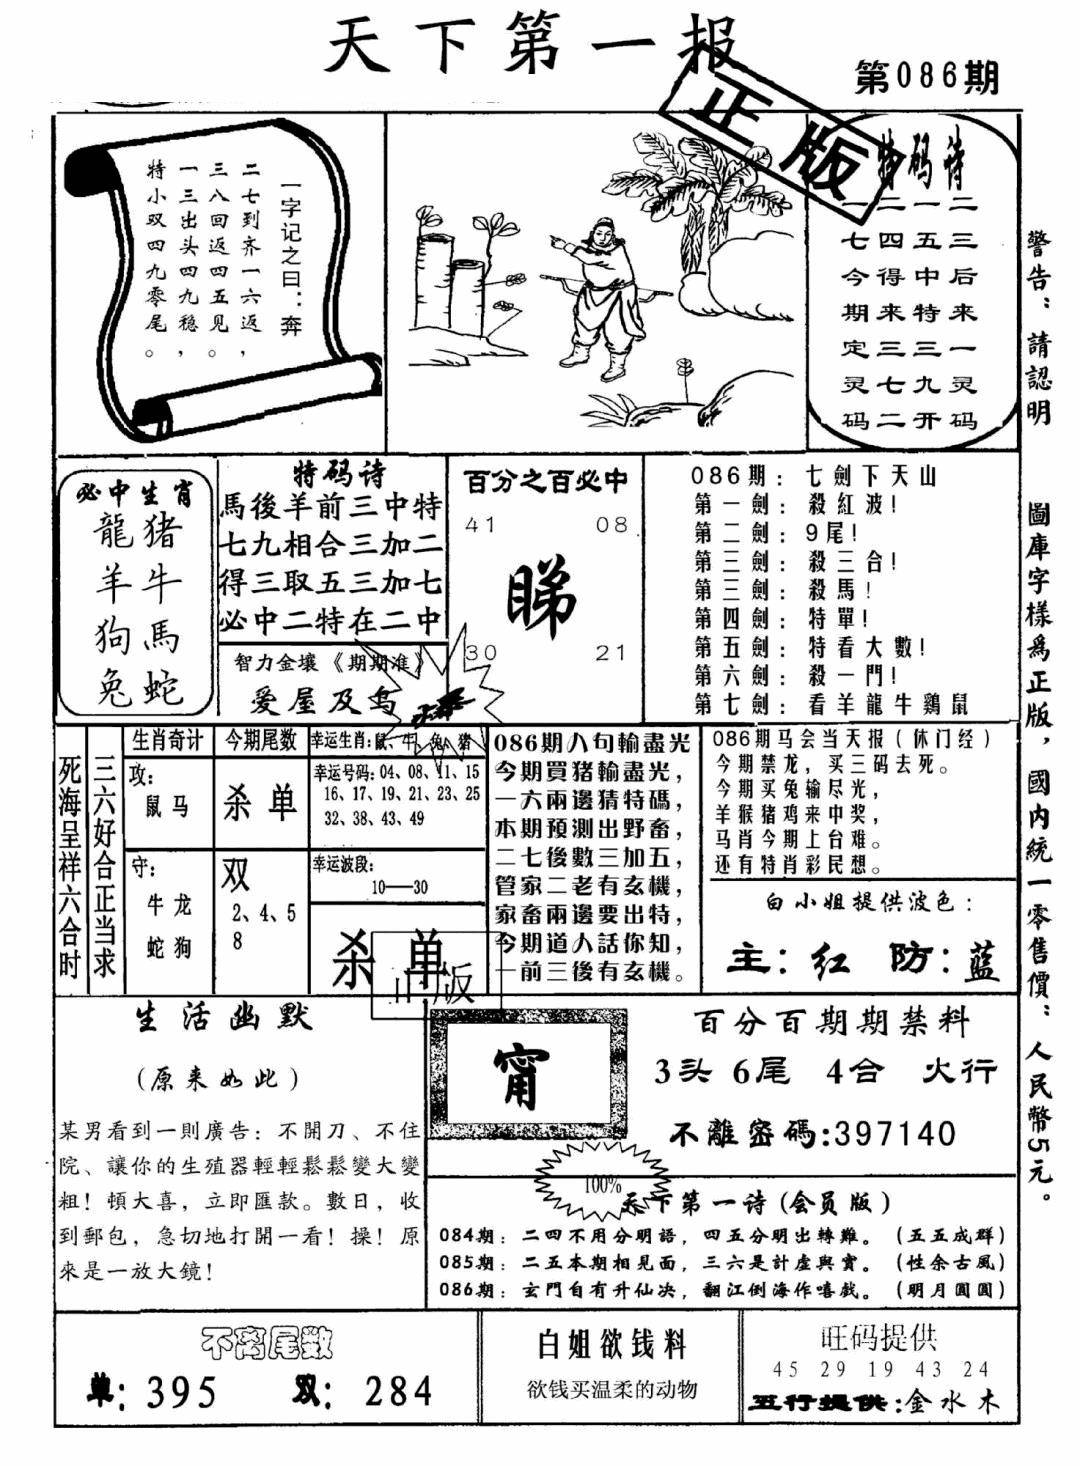 天下第一报
第086期
正版
一字记之曰：奔
二七到齐一六返，
三八回返四五见。
一三出头四九稳，
特小双四九零尾。
特码诗
二三后来一灵码
一五中特三九开
二四得来三七二
一七今期定灵码
警告：請認明
圖庫字樣爲正版，國内統一零售價：人民幣5元。
必中生肖
龍猪
羊牛
狗馬
兔蛇
特码诗
馬後羊前三中特
七九相合三加二
得三取五三加七
必中二特在二中
智力金壤《期期准》
爱屋及乌
百分之百必中
41 08
睇
30 21
086期：七劍下天山
第一劍：殺紅波！
第二劍：9尾！
第三劍：殺三合！
第三劍：殺馬！
第四劍：特單！
第五劍：特看大數！
第六劍：殺一門！
第七劍：看羊龍牛鷄鼠
死海呈祥六合时
三六好合正当求
生肖奇计
攻：
鼠马
守：
牛龙
蛇狗
今期尾数
杀单
双
2、4、5
8
幸运生肖：鼠、牛、兔、猪
幸运号码：04、08、11、15
16、17、19、21、23、25
32、38、43、49
幸运波段：
10—30
杀单
正版
086期八句輸盡光
今期買猪輸盡光，
一六兩邊猜特碼，
本期預測出野畜，
二七後數三加五，
管家二老有玄機，
家畜兩邊要出特，
今期道人話你知，
一前三後有玄機。
086期马会当天报（休门经）
今期禁龙，买三码去死。
今期买兔输尽光，
羊猴猪鸡来中奖，
马肖今期上台难。
还有特肖彩民想。
白小姐提供波色：
主：红 防：蓝
生活幽默
（原来如此）
某男看到一則廣告：不開刀、不住
院、讓你的生殖器輕輕鬆鬆變大變
粗！頓大喜，立即匯款。數日，收
到郵包，急切地打開一看！操！原
來是一放大鏡！
甯
百分百期期禁料
3头 6尾 4合 火行
不離密碼:397140
100%
天下第一诗(会员版)
084期：二四不用分明語，四五分明出轉難。（五五成群）
085期：二五本期相見面，三六是計虛與實。（性余古風）
086期：玄門自有升仙决，翻江倒海作嘻戲。（明月圓圓）
不离尾数
单：395 双：284
白姐欲钱料
欲钱买温柔的动物
旺码提供
45 29 19 43 24
五行提供:金水木